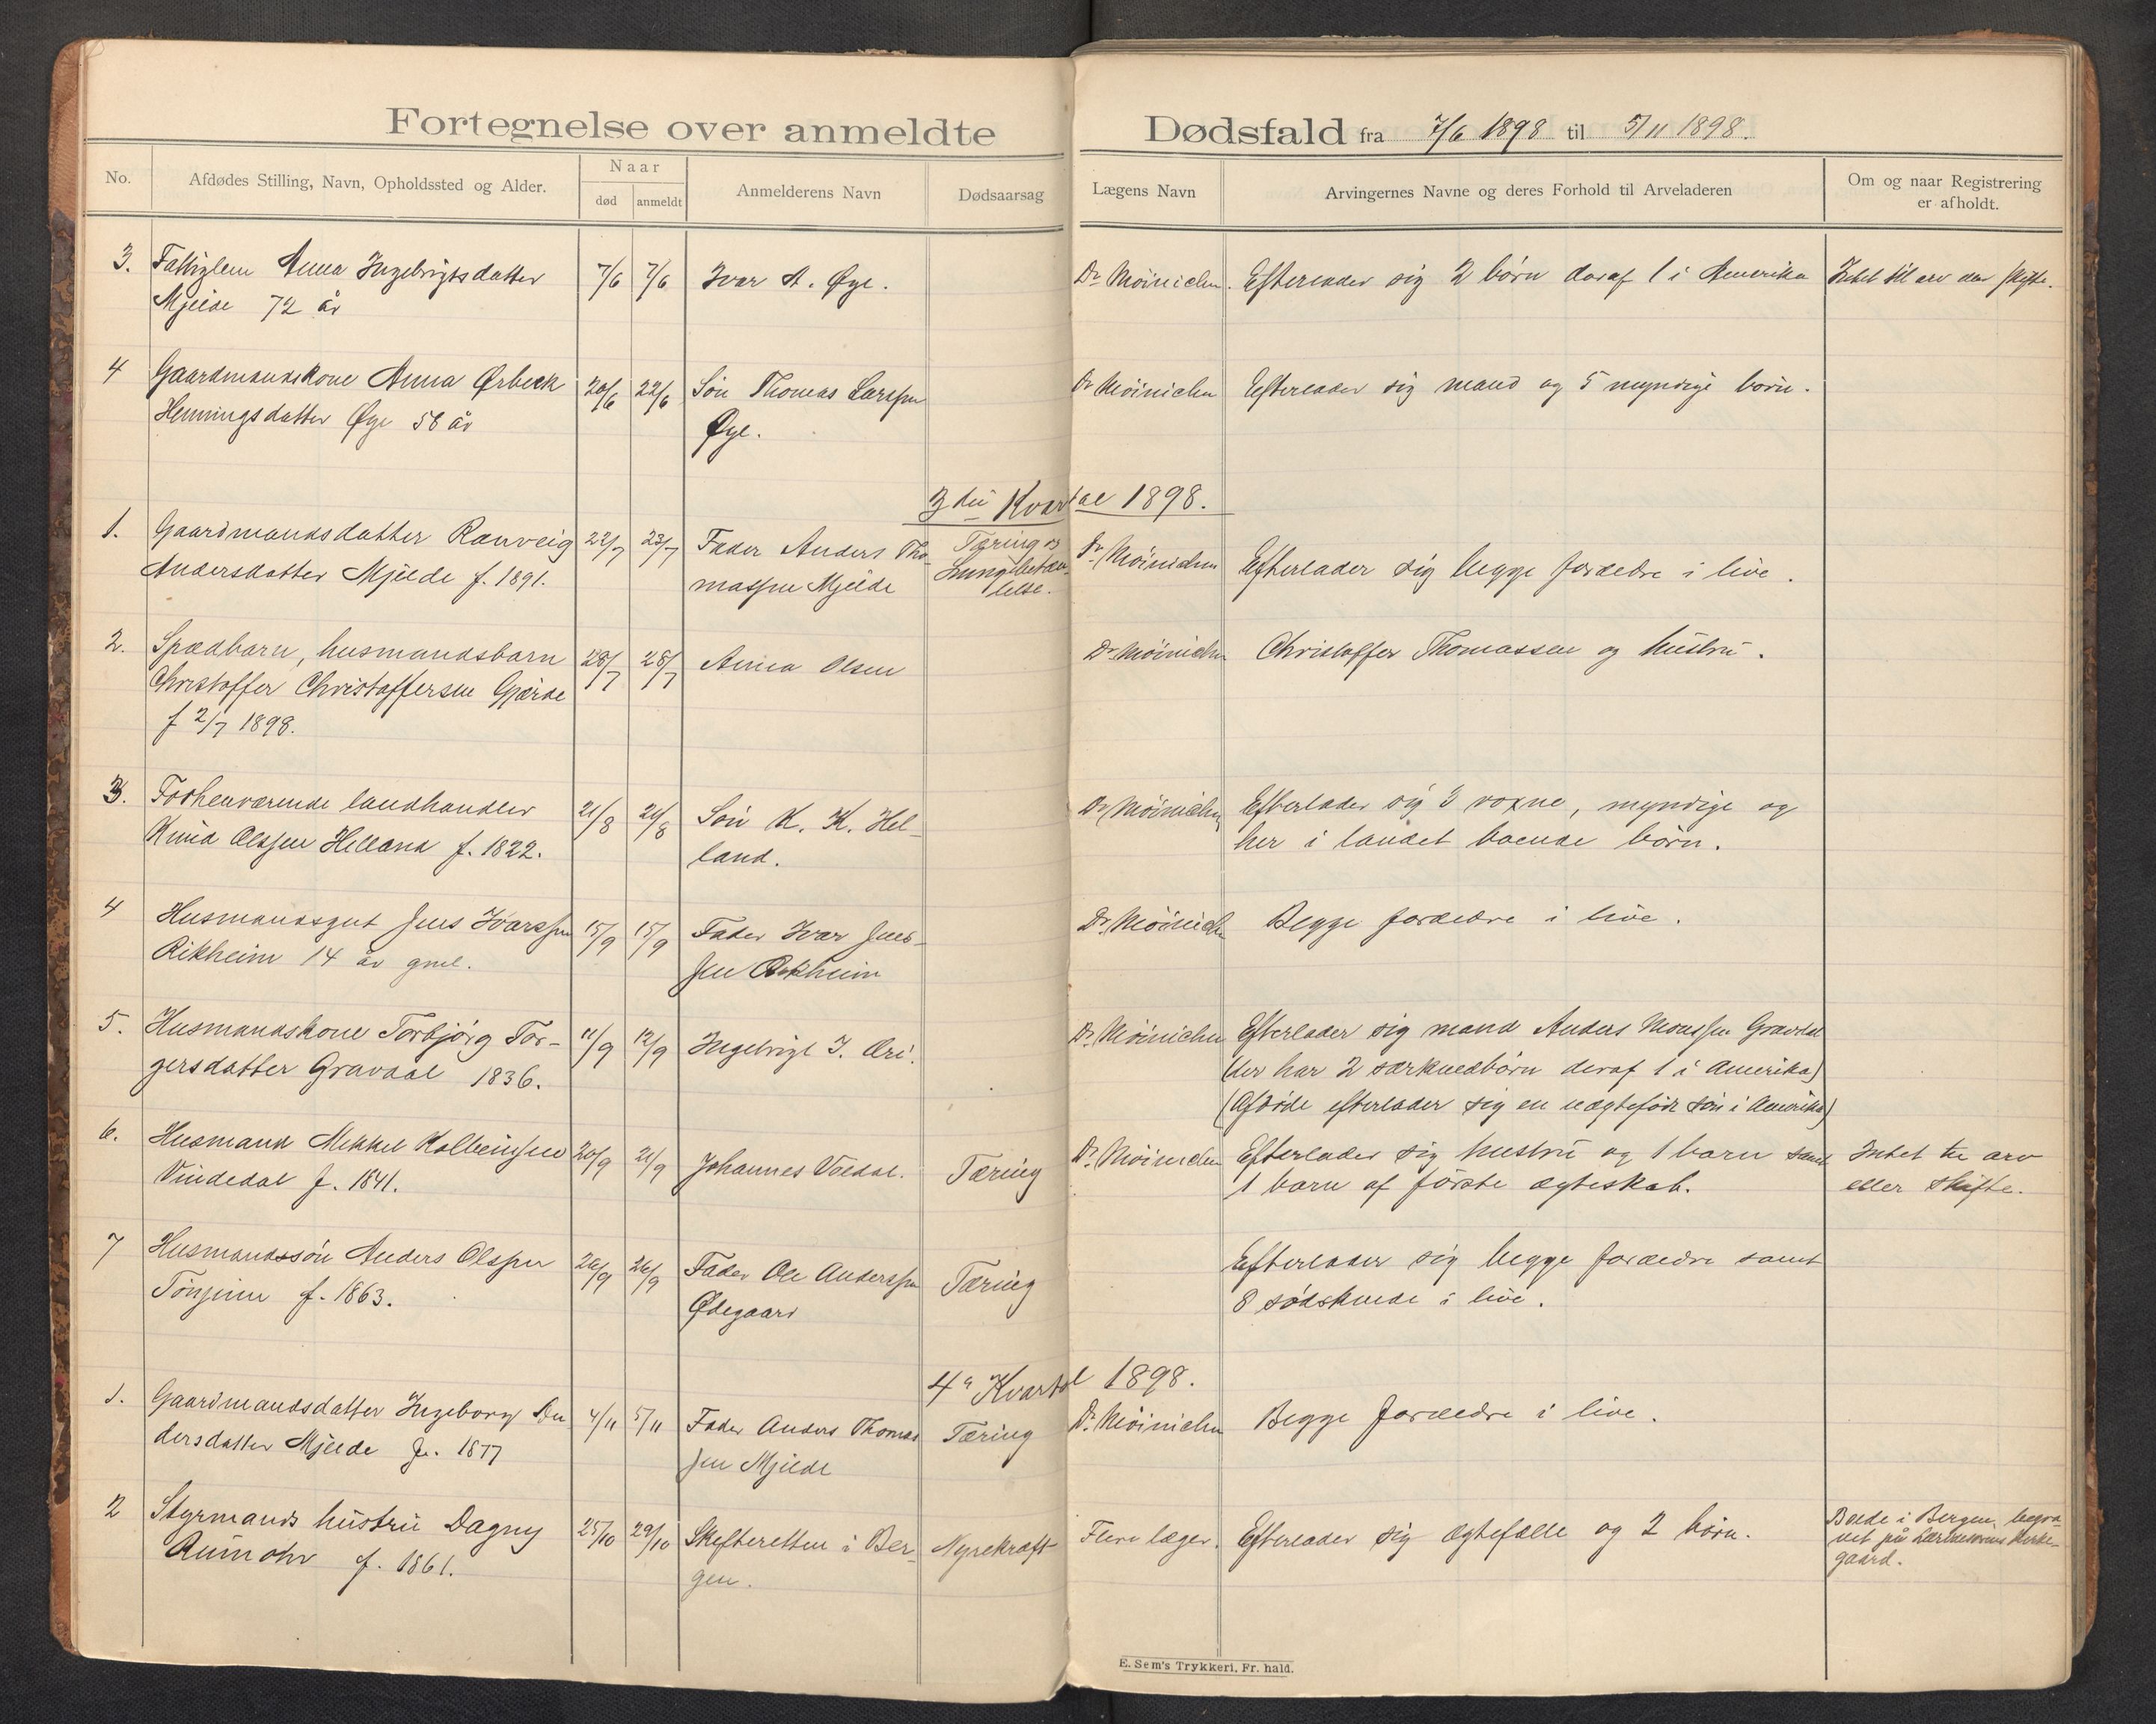 Fortegnelse over anmeldte Dødsfald fra 7/6 1898 til 5/11 1898.
No.
Afdødes Stilling, Navn, Opholdssted og Alder.
Naar
død
anmeldt
Anmelderens Navn
Dødsaarsag
Lægens Navn
Arvingernes Navne og deres Forhold til Arveladeren
Om og naar Registrering
er afholdt.
3. Fattiglem Anna Ingebrigtsdatter 7/6 7/6 Ivar A. Øye. Dr Møinichen. Efterlader sig 2 børn deraf 1 i Amerika Intet til arv eller skifte.
Mjelde 72 år
4 Gaardmandskone Anna Ørbeck 20/6 22/6 Søn Thomas Larssen Dr Møinichen Efterlader sig mand og 5 myndige børn.
Henningsdatter Øye 58 år Øye.
3die Kvartal 1898.
1. Gaardmandsdatter Ranveig 22/7 23/7 Fader Anders Tho- Tæring og Dr Møinichen Efterlader sig begge forældre i live.
Andersdatter Mjelde f. 1891. massen Mjelde Lungebetæn-
delse.
2. Spædbarn, husmandsbarn 28/7 28/7 Anna Olsen Dr Møinichen Christoffer Thomassen og hustru.
Christoffer Christoffersen Gjærde
f 2/7 1898.
3. Forhenværende landhandler 21/8 24/8 Søn K. K. Hel- Dr Møinichen Efterlader sig 3 voxne, myndige og
Knud Olssen Helland f. 1822. land. her i landet boende børn.
4 Husmandsgut Jens Ivarssen 15/9 15/9 Fader Ivar Jens- Dr. Møinichen Begge forældre i live.
Rikheim 14 år gml. sen Rikheim
5. Husmandskone Torbjørg Tor- 11/9 12/9 Ingebrigt I. Eri. Dr. Møinichen Efterlader sig mand Anders Monssen Gravdal
gersdatter Gravdal 1836. (der har 2 særkuldbørn deraf 1 i Amerika)
(Afdøde efterlader sig en uægtefødt søn i Amerika)
6. Husmand Mikkel Kolbeinsen 20/9 21/9 Johannes Voldal. Tæring Dr. Møinichen Efterlader sig hustru og 1 barn samt Intet til arv
Vindedal f. 1841. 1 barn af første ægteskab. eller skifte.
7 Husmandssøn Anders Olssen 26/9 26/9 Fader Ole Anderssen Tæring Efterlader sig begge forældre samt
Tønjum f. 1863. Ødegaard 8 sødskende i live.
4de Kvartal 1898.
1. Gaardmandsdatter Ingeborg An- 4/11 5/11 Fader Anders Thomas- Tæring Dr. Møinichen Begge forældre i live.
dersdatter Mjelde f. 1877 sen Mjelde
2 Styrmands hustru Dagny 25/10 29/10 Skifteretten i Ber- Nyrekræft Flere læger. Efterlader sig ægtefælle og 2 børn. Boede i Bergen, begra-
Rumohr f. 1861. gen. vet på Lærdalsørens kirke-
gaard.
E. Sem's Trykkeri, Fr. hald.